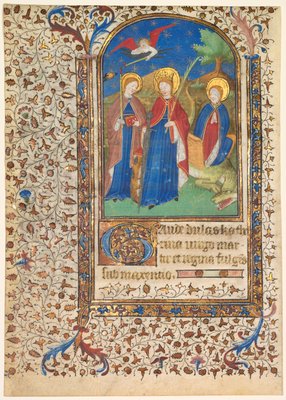 Gaude dulcis kathe
rina virgo mar
tir et regina fulgẽs
sub maxentio